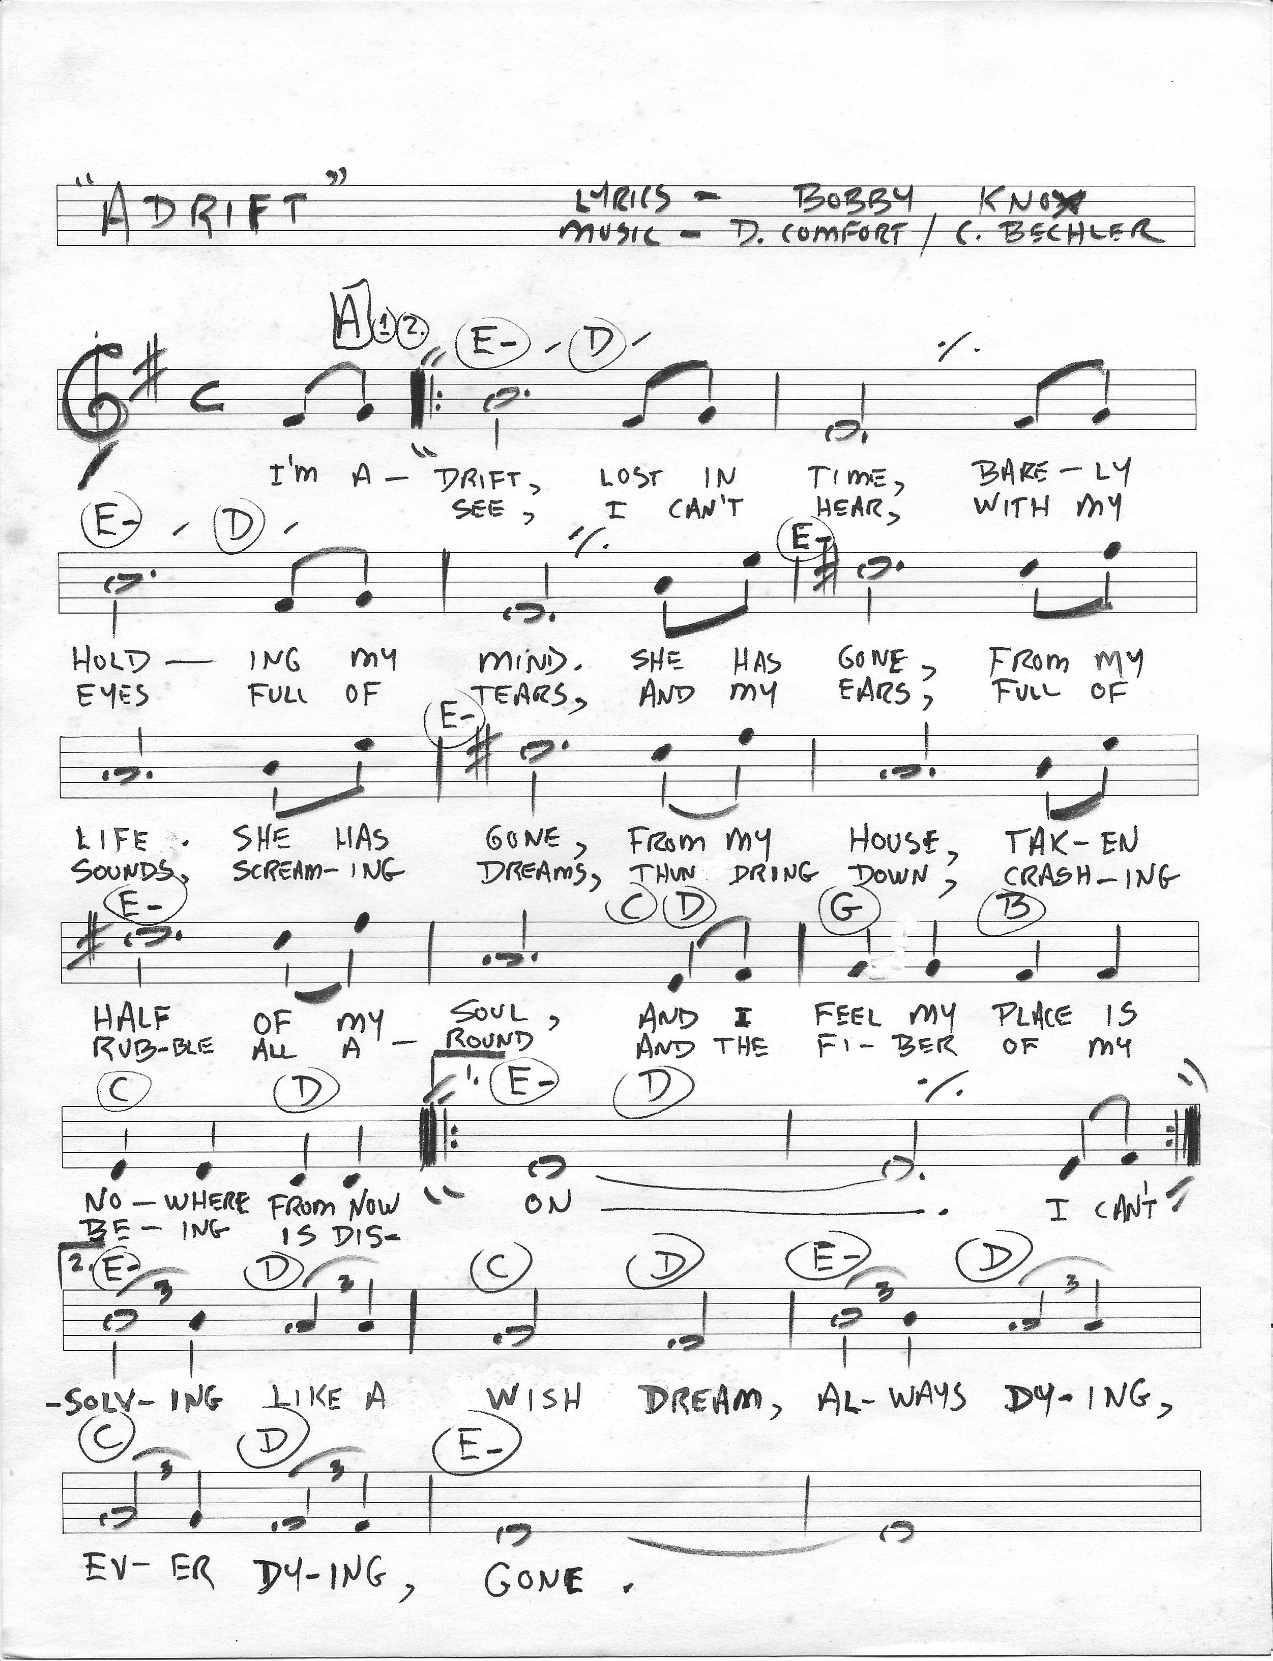 "ADRIFT" LYRICS - BOBBY KNOX
MUSIC - D. COMFORT / C. BECHLER
A 1 2. E- D
C
I'M A- DRIFT, LOST IN TIME, BARE-LY
SEE, I CAN'T HEAR, WITH MY
E- D E-
HOLD — ING MY MIND. SHE HAS GONE, FROM MY
EYES FULL OF TEARS, AND MY EARS, FULL OF
E-
LIFE. SHE HAS GONE, FROM MY HOUSE, TAK-EN
SOUNDS, SCREAM-ING DREAMS, THUN DRING DOWN, CRASH-ING
E- C D G B
HALF OF MY SOUL, AND I FEEL MY PLACE IS
RUB-BLE ALL A - ROUND AND THE FI-BER OF MY
C D 1. E- D
NO-WHERE FROM NOW ON . I CAN'T
BE-ING IS DIS-
2. E- D C D E- D
3 3 3 3
-SOLV-ING LIKE A WISH DREAM, AL-WAYS DY-ING,
C D E-
3 3
EV-ER DY-ING, GONE.